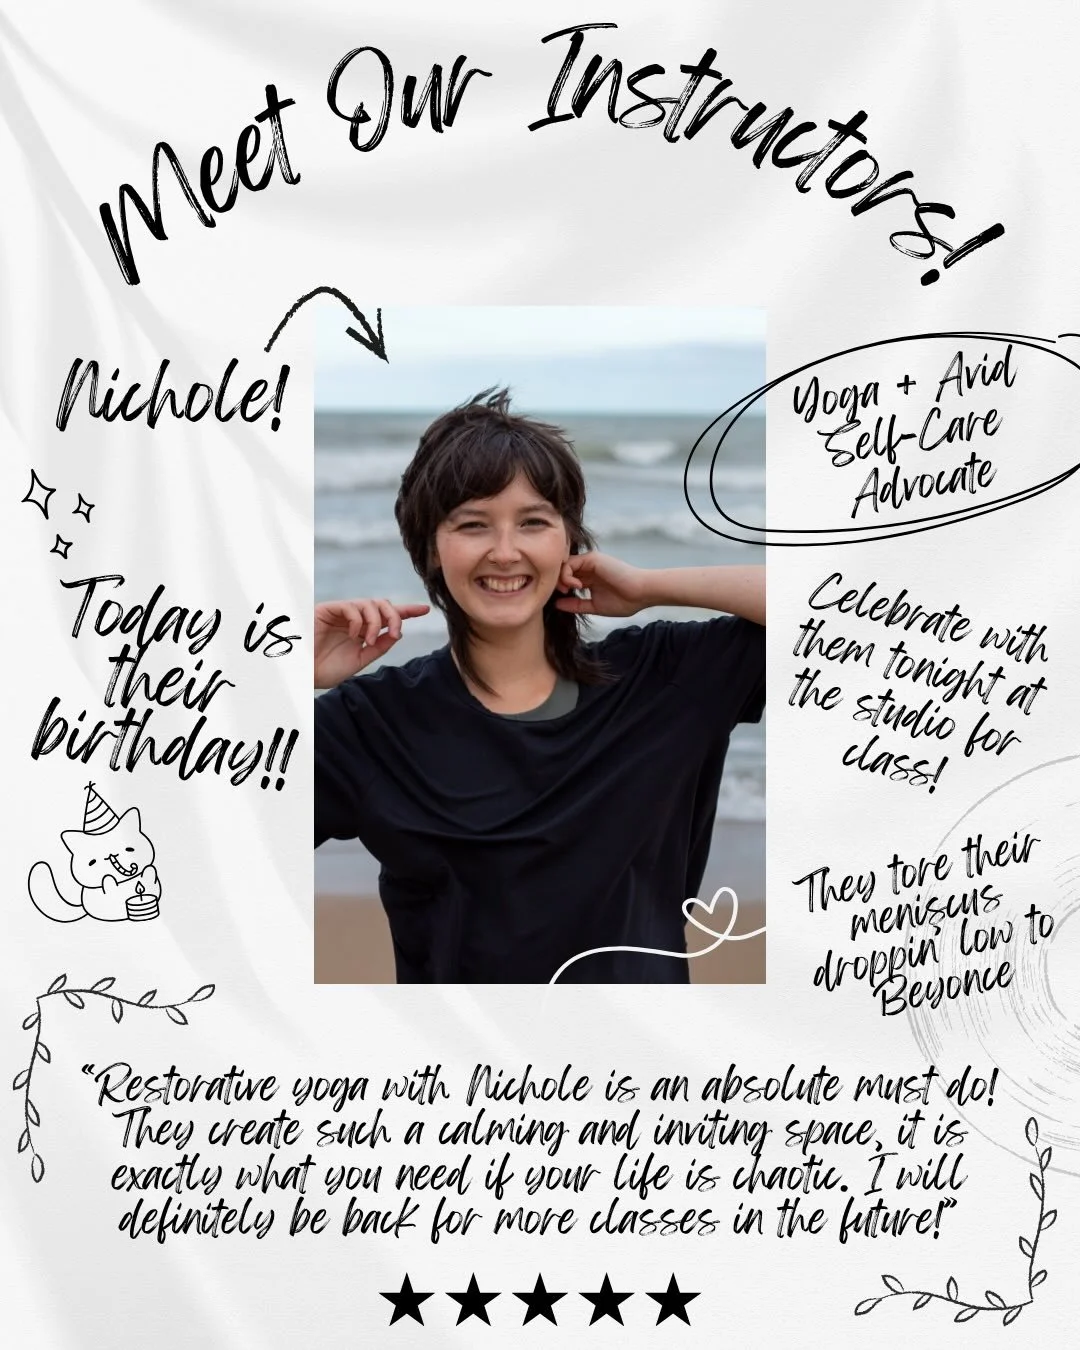 Meet Our Instructors!
Nichole!
Yoga + Avid
Self-Care
Advocate
Today is
their
birthday!!
Celebrate with
them tonight at
the studio for
class!
They tore their
meniscus
droppin' low to
Beyonce
"Restorative yoga with Nichole is an absolute must do!
They create such a calming and inviting space, it is
exactly what you need if your life is chaotic. I will
definitely be back for more classes in the future!"